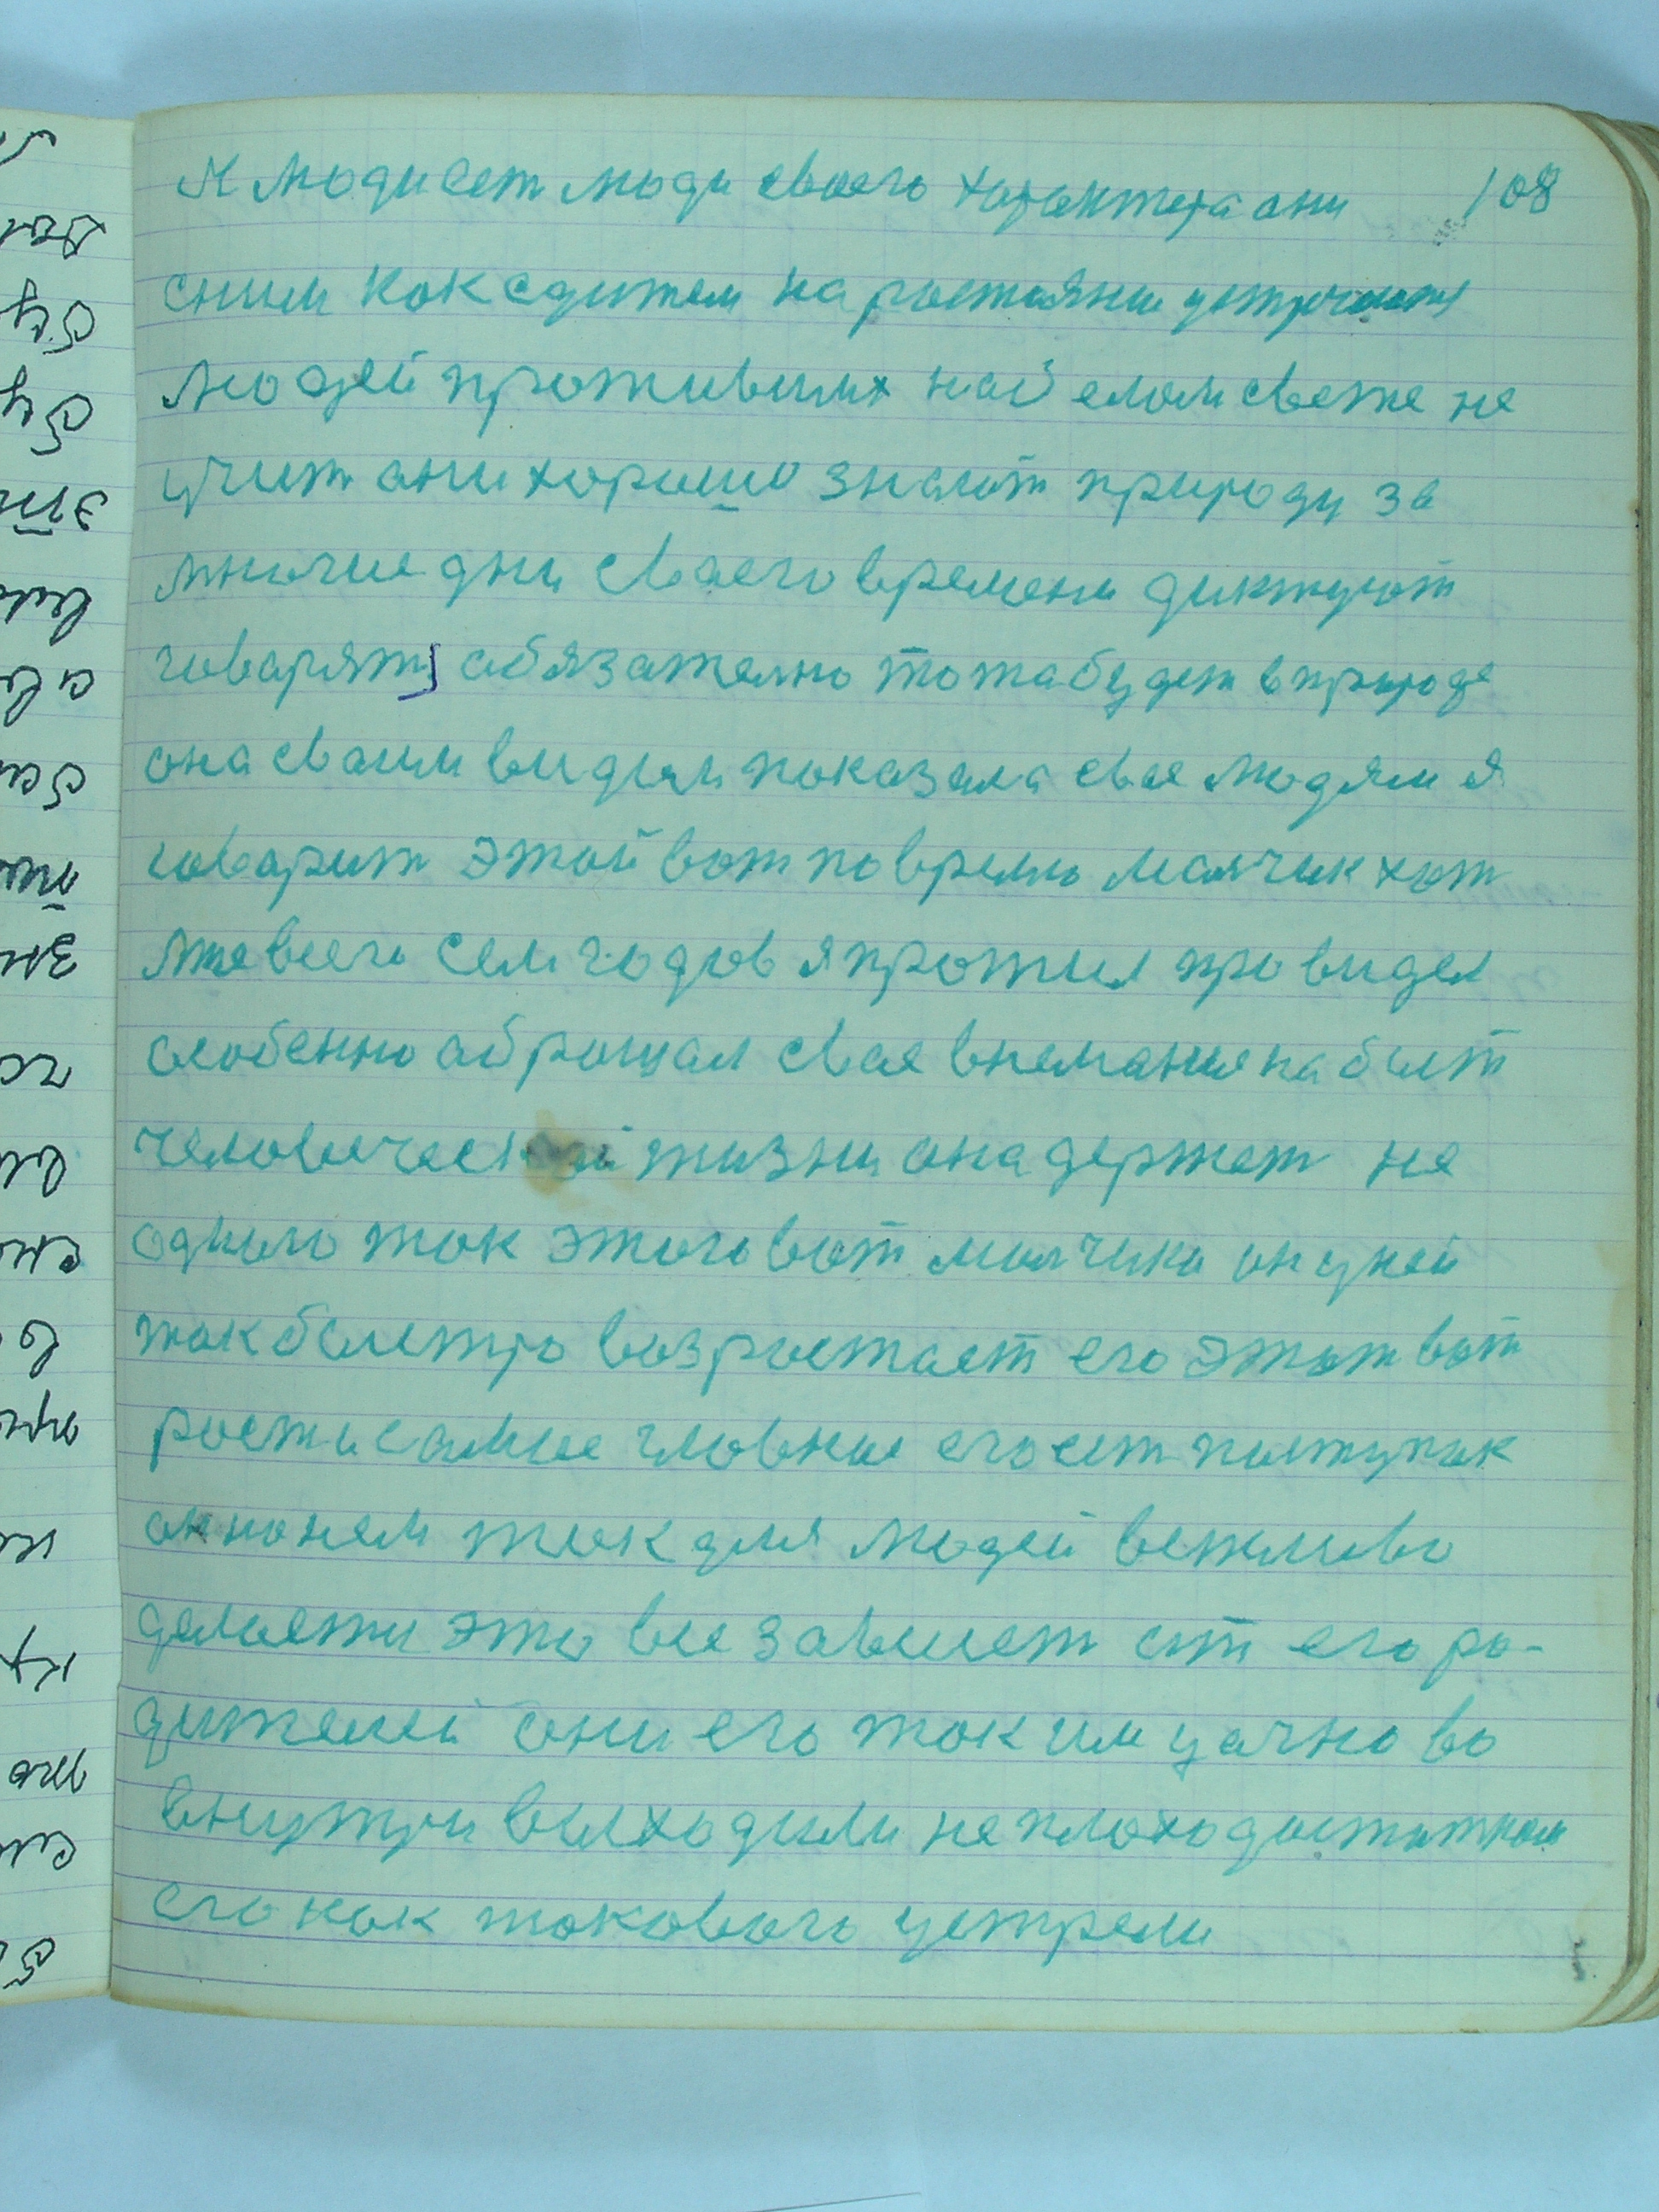 108
К люди сет люди своего характера они
сним как с дитем на растаяни устречают
людей проживших на белом свете не
учит они хорошо знают природу за
многие дни сваего времени диктуют
говарят, абязателно то та будет в природе
она сваим видам показала свае людям я
говарит этой вот по время малчик хот
мне всего сем годов я прожил провидел
особенно аброщал свае внемание на быт
человеческай жизни она держет не
одного так этого вот малчика он у ней
так быстро возростает его этот вот
рост и самое главное его ест поступак
он нонем так для людей вежливо
делает и это все зависет от его ро-
дителей они его таким удачно во
внутри выходили не плохо
его как такового устрели